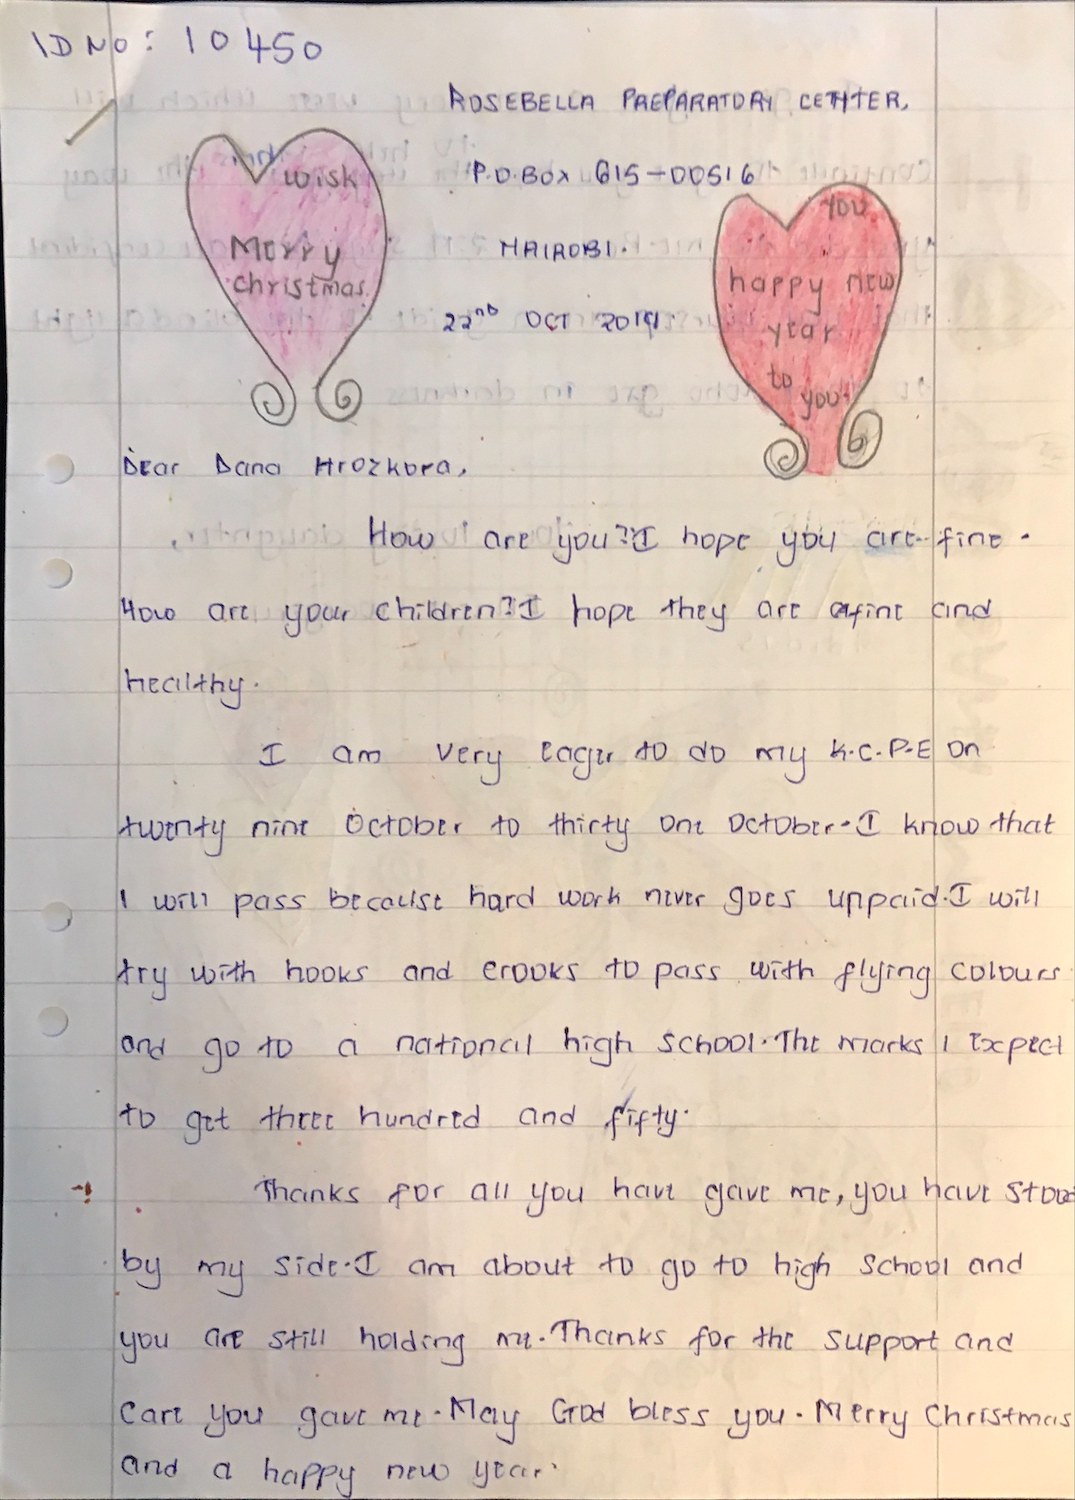 ID NO: 10450
ROSEBELLA PREPARATORY CENTER,
P.O.BOX 615-00516
NAIROBI.
22ND OCT 2019.
wish
Merry
christmas.
You
happy new
year
to
you!
Dear Dana Hrozkova,
How are you? I hope you are fine.
How are your children? I hope they are afine and
healthy.
I am very eager to do my K.C.P.E on
twenty nine October to thirty one October. I know that
I will pass because hard work never goes unpaid. I will
try with hooks and crooks to pass with flying colours
and go to a national high school. The marks I expect
to get three hundred and fifty.
Thanks for all you have gave me, you have stood
by my side. I am about to go to high school and
you are still holding me. Thanks for the support and
care you gave me. May God bless you. Merry Christmas
and a happy new year.